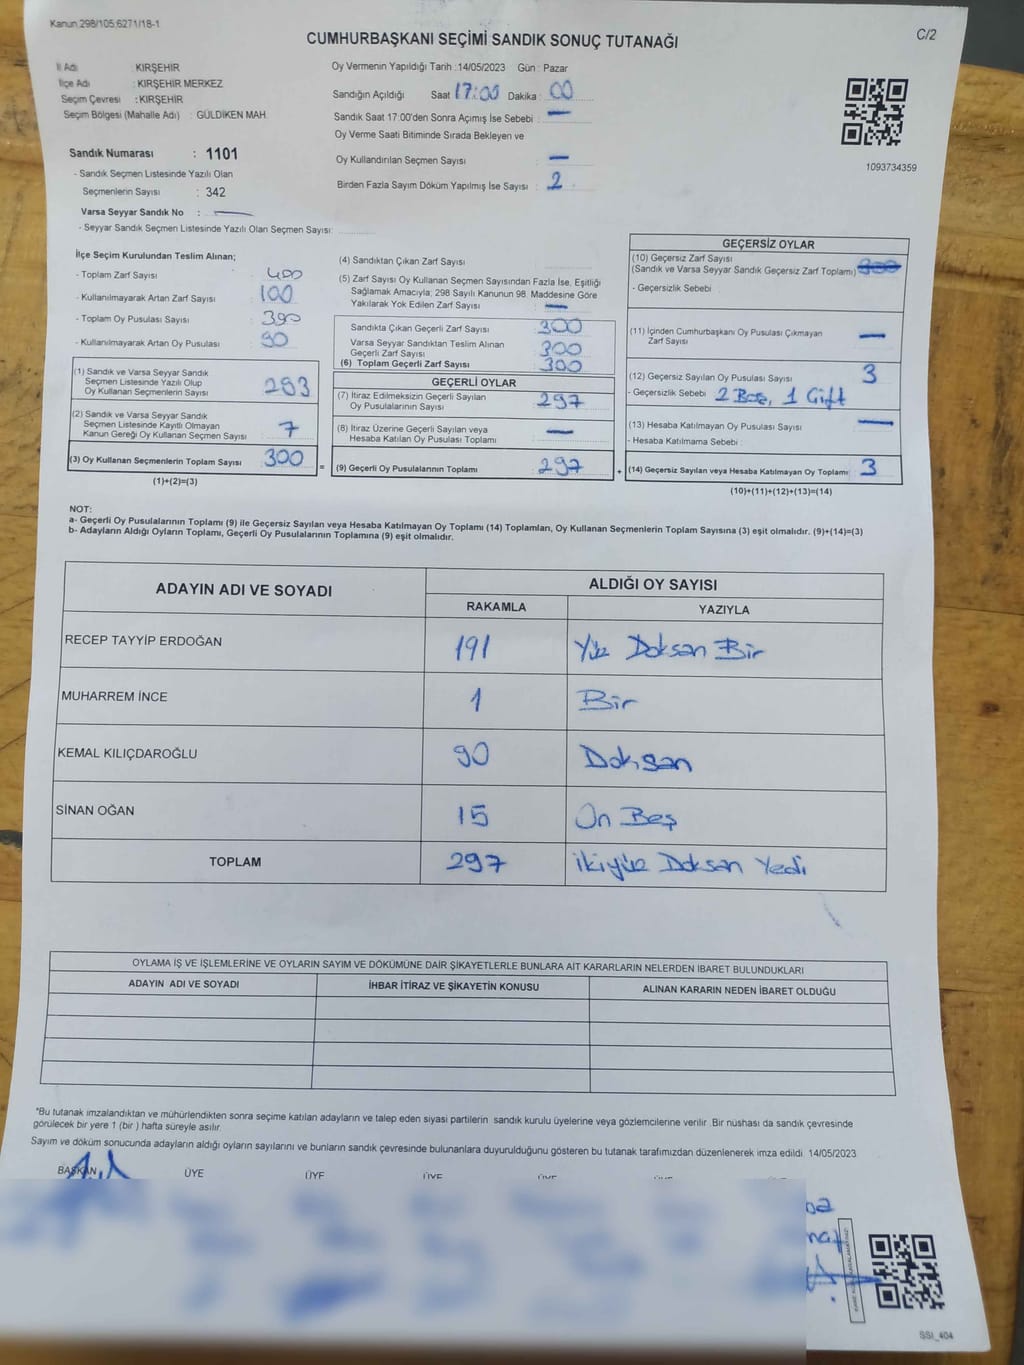 Kanun 298/105:6271/18-1
C/2
CUMHURBAŞKANI SEÇİMİ SANDIK SONUÇ TUTANAĞI
İl Adı : KIRŞEHİR
İlçe Adı : KIRŞEHİR MERKEZ
Seçim Çevresi : KIRŞEHİR
Seçim Bölgesi (Mahalle Adı) : GÜLDİKEN MAH.
Sandık Numarası : 1101
- Sandık Seçmen Listesinde Yazılı Olan
Seçmenlerin Sayısı : 342
Varsa Seyyar Sandık No : —
- Seyyar Sandık Seçmen Listesinde Yazılı Olan Seçmen Sayısı:
Oy Vermenin Yapıldığı Tarih :14/05/2023 Gün : Pazar
Sandığın Açıldığı Saat 17:00 Dakika : 00
Sandık Saat 17:00'den Sonra Açımış İse Sebebi : —
Oy Verme Saati Bitiminde Sırada Bekleyen ve
Oy Kullandırılan Seçmen Sayısı : —
Birden Fazla Sayım Döküm Yapılmış İse Sayısı : 2
1093734359
İlçe Seçim Kurulundan Teslim Alınan;
- Toplam Zarf Sayısı : 400
- Kullanılmayarak Artan Zarf Sayısı : 100
- Toplam Oy Pusulası Sayısı : 390
- Kullanılmayarak Artan Oy Pusulası : 90
(1) Sandık ve Varsa Seyyar Sandık
Seçmen Listesinde Yazılı Olup
Oy Kullanan Seçmenlerin Sayısı : 293
(2) Sandık ve Varsa Seyyar Sandık
Seçmen Listesinde Kayıtlı Olmayan
Kanun Gereği Oy Kullanan Seçmen Sayısı : 7
(3) Oy Kullanan Seçmenlerin Toplam Sayısı : 300
(1)+(2)=(3)
=
(4) Sandıktan Çıkan Zarf Sayısı :
(5) Zarf Sayısı Oy Kullanan Seçmen Sayısından Fazla İse, Eşitliği
Sağlamak Amacıyla; 298 Sayılı Kanunun 98. Maddesine Göre
Yakılarak Yok Edilen Zarf Sayısı : —
Sandıkta Çıkan Geçerli Zarf Sayısı : 300
Varsa Seyyar Sandıktan Teslim Alınan
Geçerli Zarf Sayısı : 300
(6) Toplam Geçerli Zarf Sayısı : 300
GEÇERLİ OYLAR
(7) İtiraz Edilmeksizin Geçerli Sayılan
Oy Pusulalarının Sayısı : 297
(8) İtiraz Üzerine Geçerli Sayılan veya
Hesaba Katılan Oy Pusulası Toplamı : —
(9) Geçerli Oy Pusulalarının Toplamı : 297
+
GEÇERSİZ OYLAR
(10) Geçersiz Zarf Sayısı
(Sandık ve Varsa Seyyar Sandık Geçersiz Zarf Toplamı) : 300
- Geçersizlik Sebebi :
(11) İçinden Cumhurbaşkanı Oy Pusulası Çıkmayan
Zarf Sayısı : —
(12) Geçersiz Sayılan Oy Pusulası Sayısı : 3
- Geçersizlik Sebebi : 2 Boş, 1 Çift
(13) Hesaba Katılmayan Oy Pusulası Sayısı : —
- Hesaba Katılmama Sebebi :
(14) Geçersiz Sayılan veya Hesaba Katılmayan Oy Toplamı : 3
(10)+(11)+(12)+(13)=(14)
NOT:
a- Geçerli Oy Pusulalarının Toplamı (9) ile Geçersiz Sayılan veya Hesaba Katılmayan Oy Toplamı (14) Toplamları, Oy Kullanan Seçmenlerin Toplam Sayısına (3) eşit olmalıdır. (9)+(14)=(3)
b- Adayların Aldığı Oyların Toplamı, Geçerli Oy Pusulalarının Toplamına (9) eşit olmalıdır.
ADAYIN ADI VE SOYADI ALDIĞI OY SAYISI
RAKAMLA YAZIYLA
RECEP TAYYİP ERDOĞAN 191 Yüz Doksan Bir
MUHARREM İNCE 1 Bir
KEMAL KILIÇDAROĞLU 90 Doksan
SİNAN OĞAN 15 On Beş
TOPLAM 297 ikiyüz Doksan Yedi
OYLAMA İŞ VE İŞLEMLERİNE VE OYLARIN SAYIM VE DÖKÜMÜNE DAİR ŞİKAYETLERLE BUNLARA AİT KARARLARIN NELERDEN İBARET BULUNDUKLARI
ADAYIN ADI VE SOYADI İHBAR İTİRAZ VE ŞİKAYETİN KONUSU ALINAN KARARIN NEDEN İBARET OLDUĞU
"Bu tutanak imzalandıktan ve mühürlendikten sonra seçime katılan adayların ve talep eden siyasi partilerin sandık kurulu üyelerine veya gözlemcilerine verilir. Bir nüshası da sandık çevresinde
görülecek bir yere 1 (bir ) hafta süreyle asılır.
Sayım ve döküm sonucunda adayların aldığı oyların sayılarını ve bunların sandık çevresinde bulunanlara duyurulduğunu gösteren bu tutanak tarafımızdan düzenlenerek imza edildi. 14/05/2023
BAŞKAN ÜYE ÜYE ÜYE
SSI_404